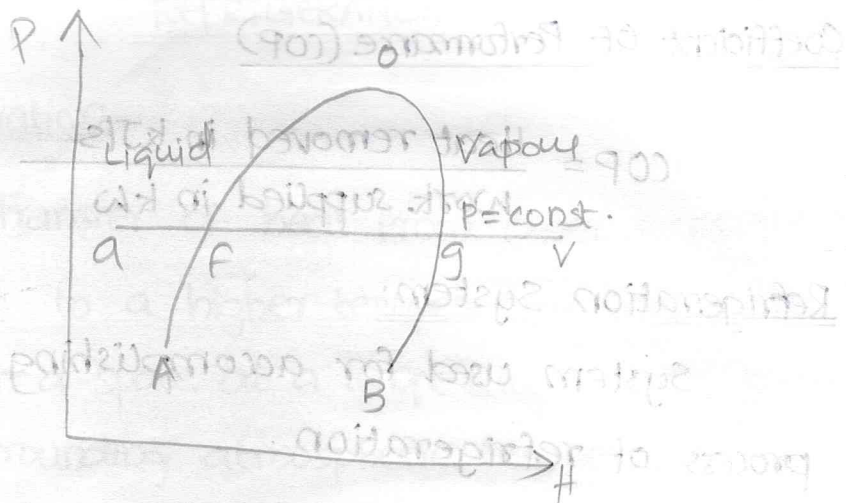 P
O
Liquid Vapour
P = const.
a f g V
A
B
H